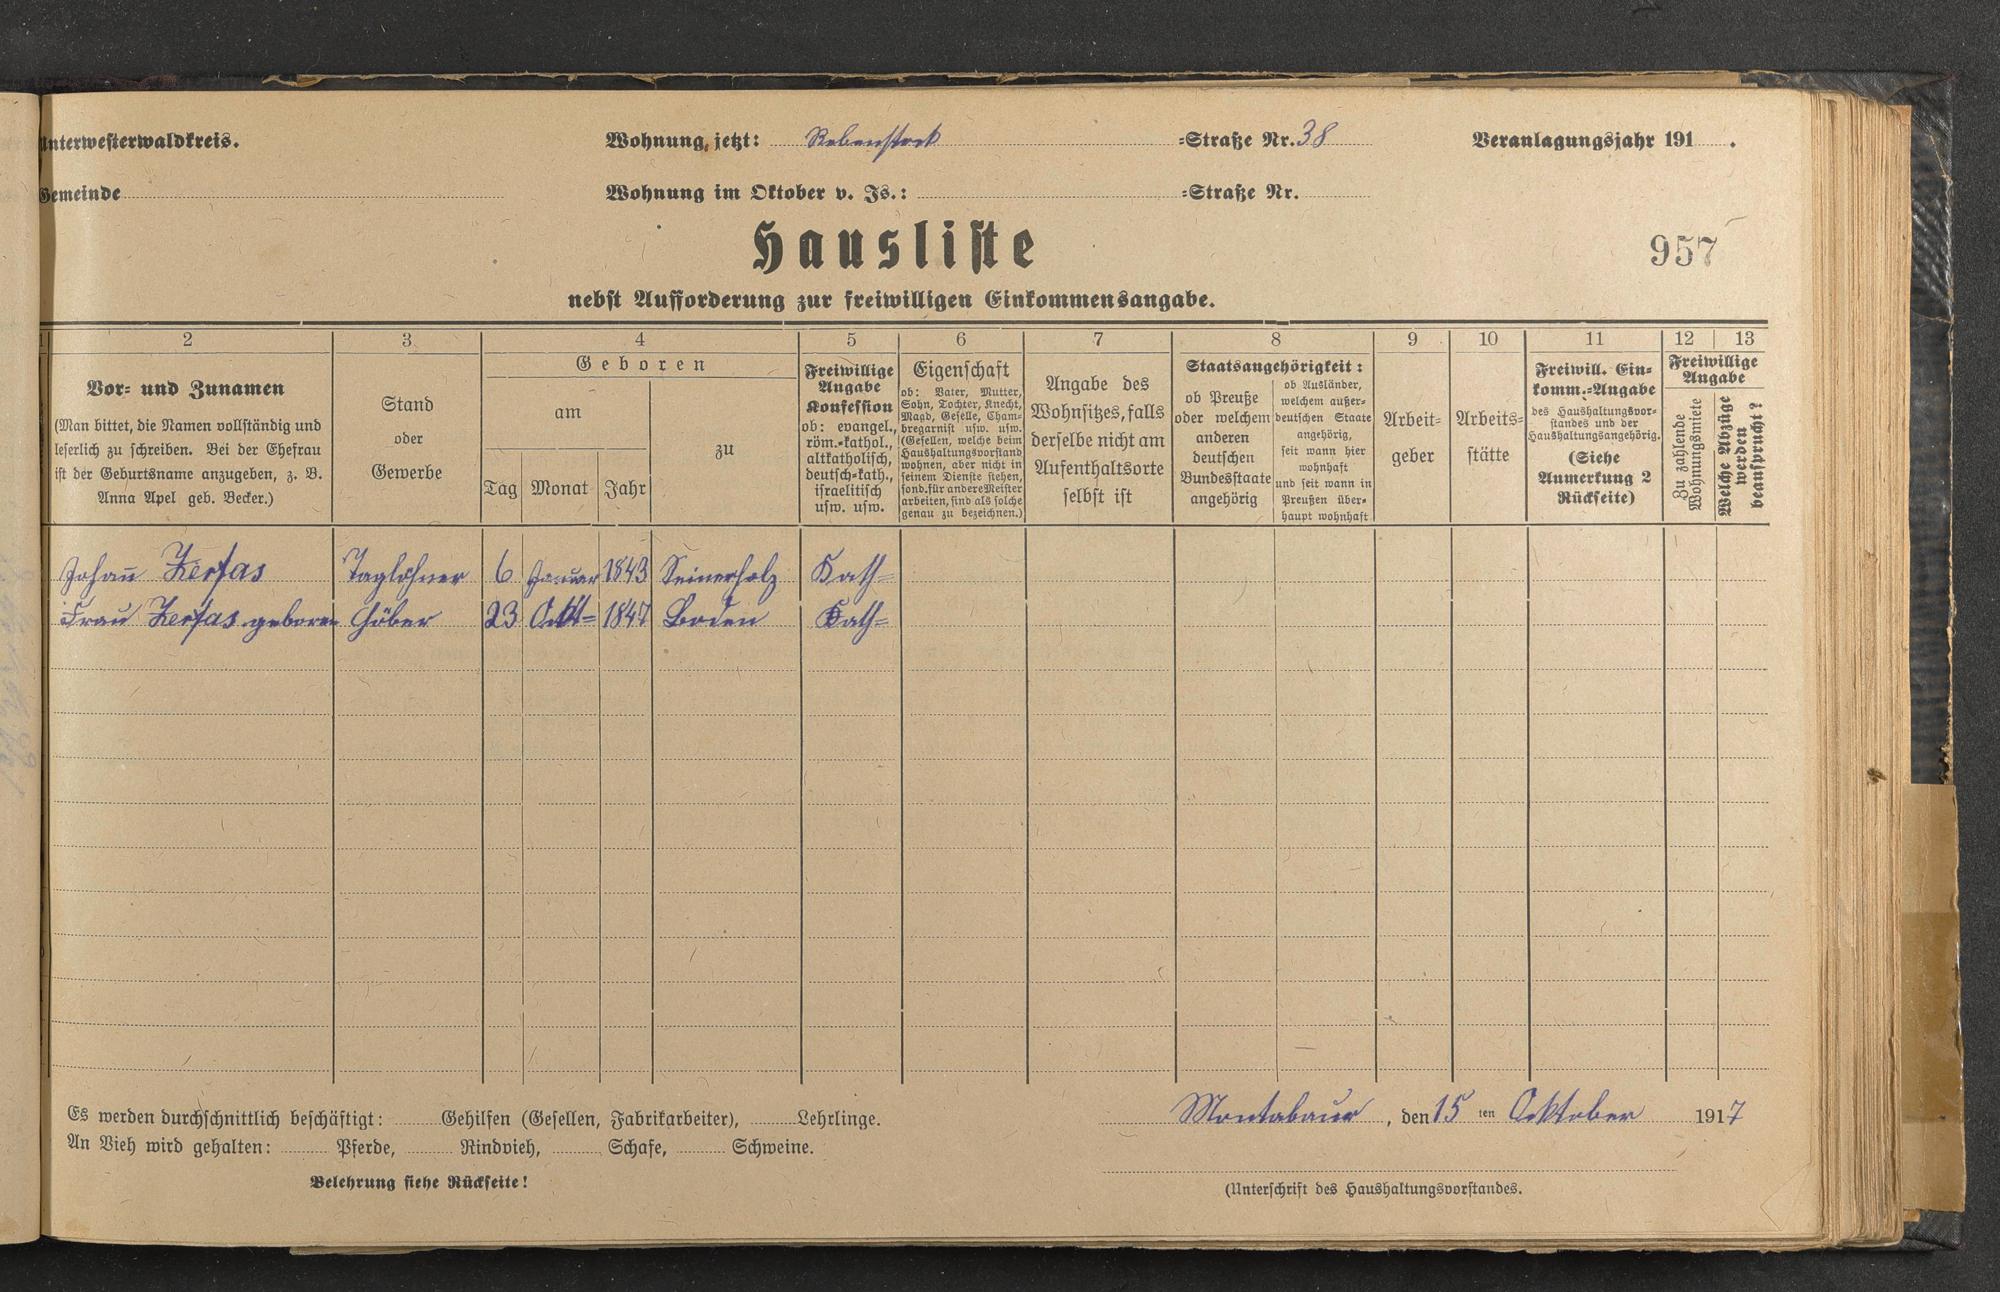 Unterwesterwaldkreis.
Wohnung, jetzt: Rebenstock =Straße Nr. 38
Veranlagungsjahr 191 .
Gemeinde
Wohnung im Oktober v. Js.: =Straße Nr.
Hausliste
957
nebst Aufforderung zur freiwilligen Einkommensangabe.
1 2 3 4 5 6 7 8 9 10 11 12 13
Vor- und Zunamen
(Man bittet, die Namen vollständig und
leserlich zu schreiben. Bei der Ehefrau
ist der Geburtsname anzugeben, z. B.
Anna Apel geb. Becker.)
Stand
oder
Gewerbe
Geboren
am
Tag Monat Jahr
zu
Freiwillige
Angabe
Konfession
ob: evangel.,
röm.-kathol.,
altkatholisch,
deutsch-kath.,
israelitisch
usw. usw.
Eigenschaft
ob: Vater, Mutter,
Sohn, Tochter, Knecht,
Magd, Geselle, Cham-
bregarnist usw. usw.
(Gesellen, welche beim
Haushaltungsvorstand
wohnen, aber nicht in
seinem Dienste stehen,
sond. für andere Meister
arbeiten, sind als solche
genau zu bezeichnen.)
Angabe des
Wohnsitzes, falls
derselbe nicht am
Aufenthaltsorte
selbst ist
Staatsangehörigkeit:
ob Preuße
oder welchem
anderen
deutschen
Bundesstaate
angehörig
ob Ausländer,
welchem außer-
deutschen Staate
angehörig,
seit wann hier
wohnhaft
und seit wann in
Preußen über-
haupt wohnhaft
Arbeit-
geber
Arbeits-
stätte
Freiwill. Ein-
komm.-Angabe
des Haushaltungsvor-
standes und der
Haushaltungsangehörig.
(Siehe
Anmerkung 2
Rückseite)
Freiwillige
Angabe
Zu zahlende
Wohnungsmiete
Welche Abzüge
werden
beansprucht?
Johann Zerfas Taglöhner 6 Januar 1843 Kath=
Frau Zerfas geboren Göber 23 Okt= 1847 Boden Kath=
Es werden durchschnittlich beschäftigt: Gehilfen (Gesellen, Fabrikarbeiter), Lehrlinge.
Montabaur, den 15 ten Oktober 1917
An Vieh wird gehalten: Pferde, Rindvieh, Schafe, Schweine.
Belehrung siehe Rückseite!
(Unterschrift des Haushaltungsvorstandes.